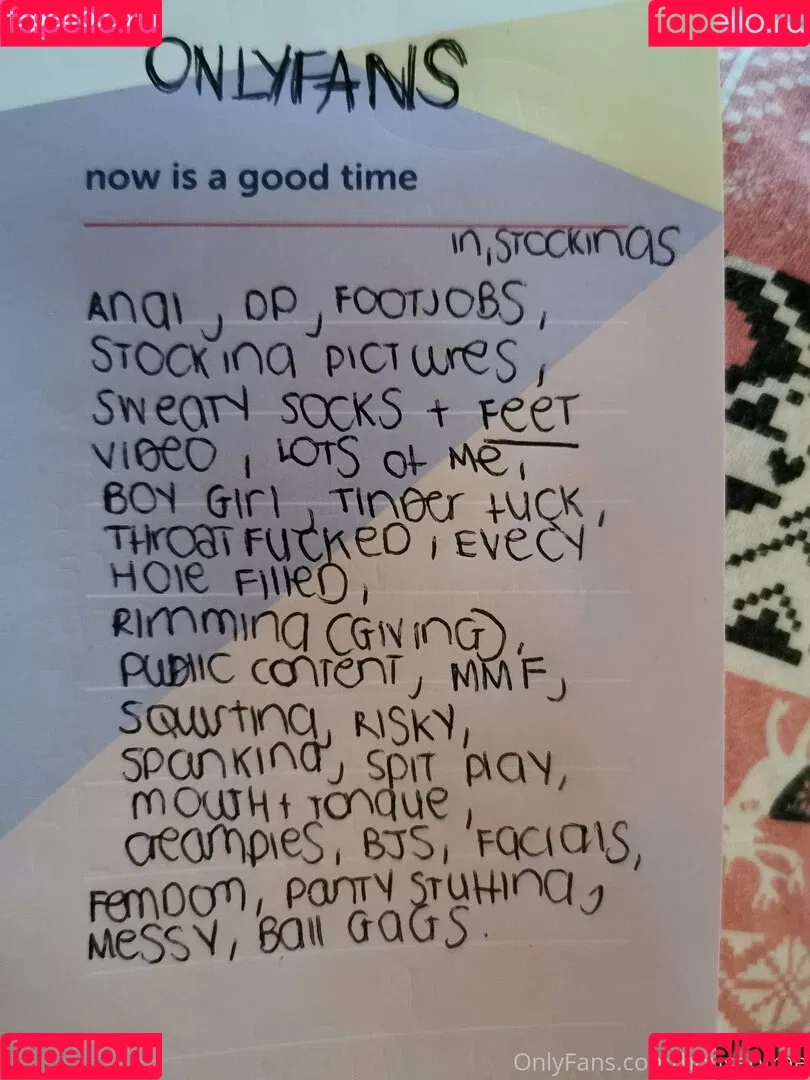 fapello.ru fapello.ru
ONLYFANS
now is a good time
in, STOCKINGS
Anal, DP, FOOTJOBS,
STOCKING PICTURES,
SWEATY SOCKS + FEET
VIDEO, LOTS of Me,
BOY Girl, TINDER fuck,
THROAT FUCKED, EVERY
HOLE FILLED,
RIMMING (GIVING),
PUBLIC CONTENT, MMF,
SQUIRTING, RISKY,
SPANKING, SPIT PLAY,
MOUTH + TONGUE,
CREAMPIES, BJS, FACIALS,
FEMDOM, PANTY STUFFING,
MESSY, BALL GAGS.
fapello.ru fapello.ru